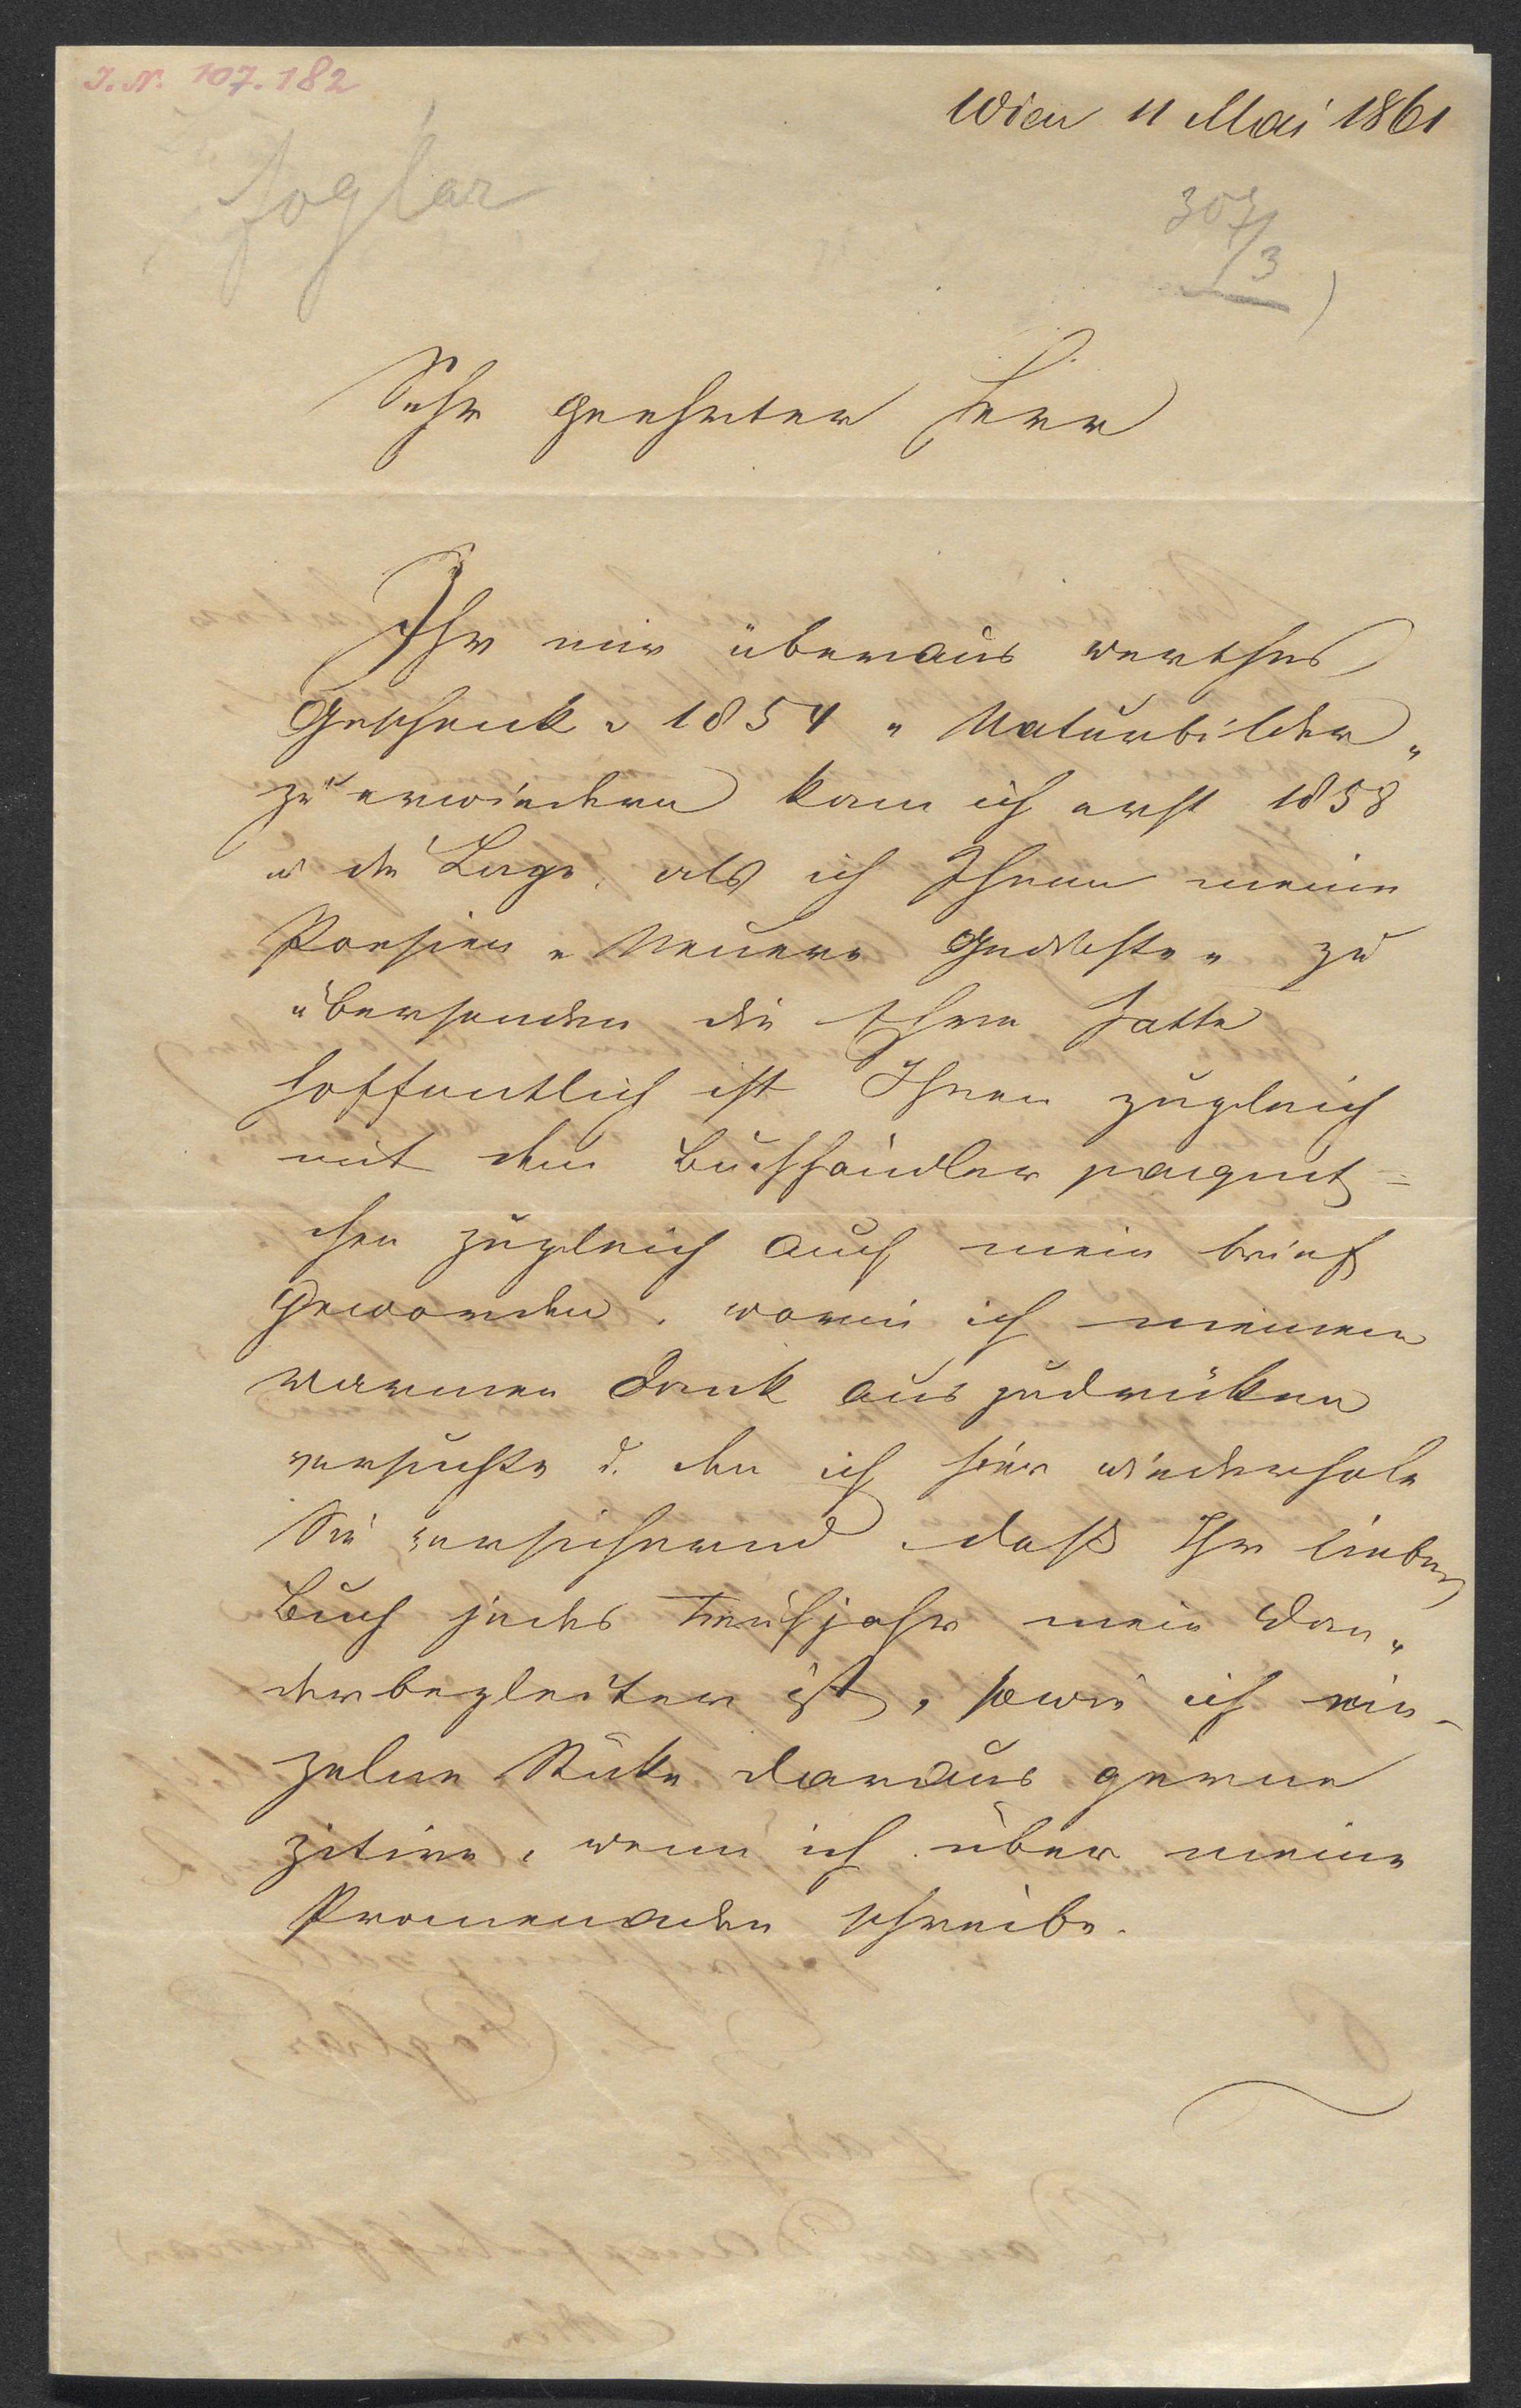 I. N. 107.182
Wien 11 Mai 1861
Foglar
307/3
Sehr geehrter Herr
Ihr mir überaus werthes
Geschenk v 1854 „Naturbilder„
zu erwiedern kam ich erst 1858
in die Lage, als ich Ihnen meine
Poesien „Neuere Gedichte„ zu
übersenden die Ehre hatte
hoffentlich ist Ihnen zugleich
mit dem Buchhändler paquet=
chen zugleich auch mein brief
geworden, worin ich meinen
warmen Dank auszudrüken
versuchte u. den ich hier wiederhole
Sie versichernd, daß Ihr liebes
Buch jedes Frühjahr mein Wan„
derbegleiter ist, sowie ich ein-
zelne Stüke daraus gerne
zitire, wenn ich über meine
Promenaden schreibe.